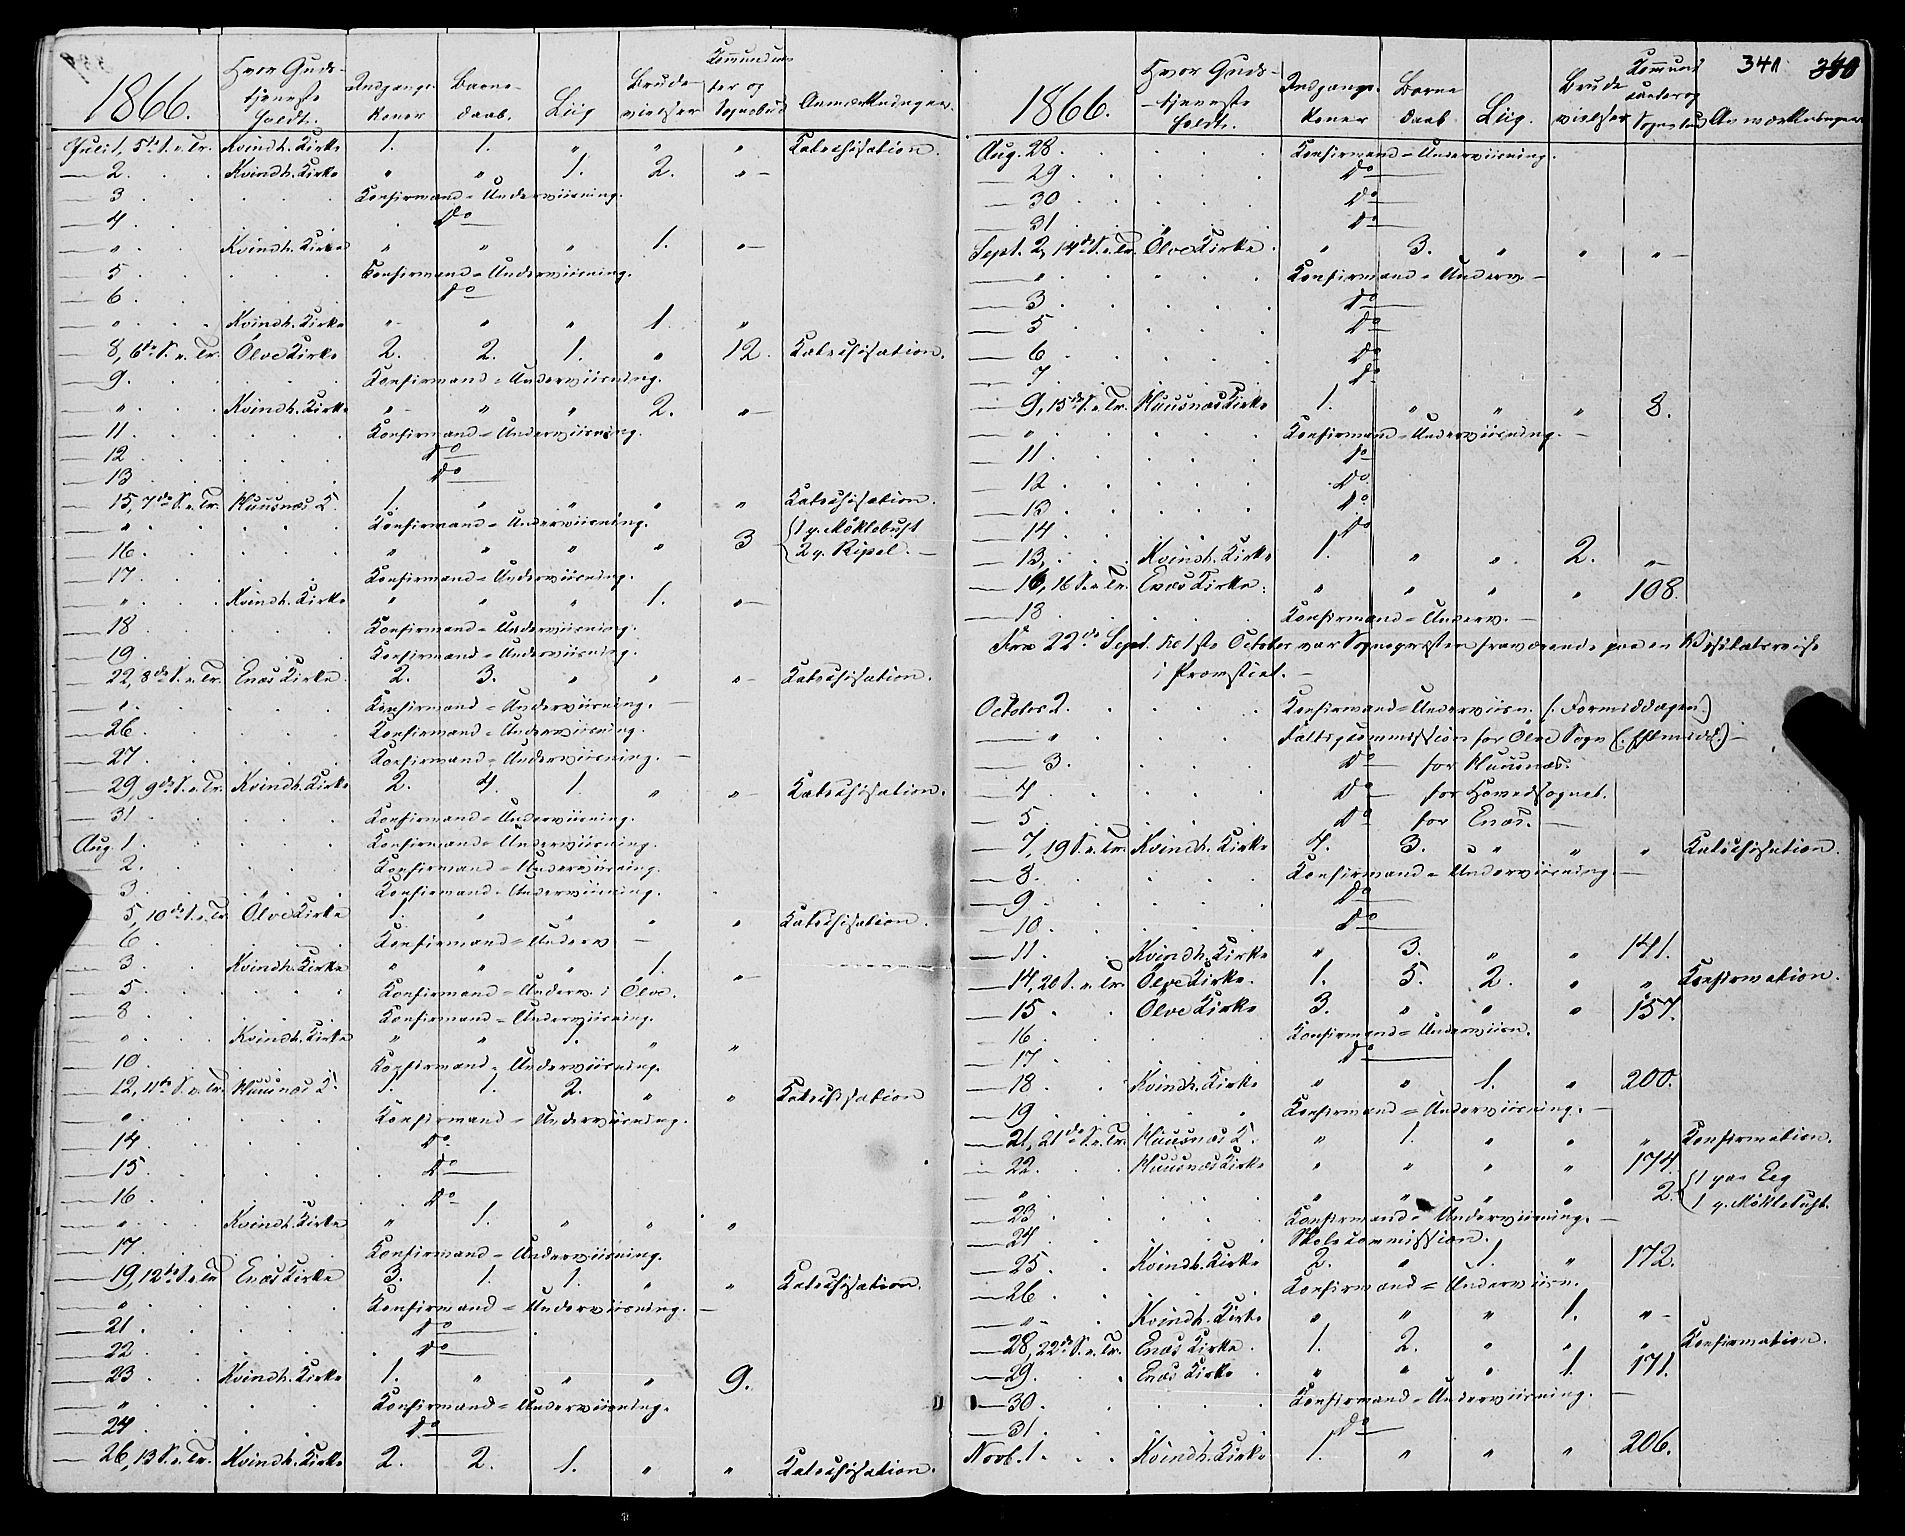 1866.
Hvor Guds-
tjeneste
holdt.
Indgangs-
koner
Barne-
daab.
Liig
Brude
vielser
Communican
ter og
Sognebud
Anmærkninger.
Juli 1, 5te S. e. Tr. Kvindh. Kirke 1. 1. " " " Katechisation.
— 2. Kvindh. Kirke " " 1. 2. "
— 3 Konfirmand-Underviisning.
— 4 Do
— " Kvindh. Kirke " " " 1. "
— 5 Konfirmand-Underviisning.
— 6 Do
— " Kvindh. Kirke " " " 1. "
— 8, 6te S. e. Tr. Ölve Kirke 2. 2. 1. " 12. Katechisation.
— 9. Konfirmand-Underviisning.
— " Kvindh. Kirke " " " 2. "
— 11 Konfirmand-Underviisning.
— 12 Do
— 13 Do
— 15, 7de S. e. Tr. Huusnæs K. 1. " " " " Katechisation.
— " Konfirmand-Underviisning.
— 16. " " " " 3 {1 p. Möklebust
2 p. Ripel.
— 17. Konfirmand-Underviisning.
— " Kvindh. Kirke " " " 1. "
— 18 Konfirmand-Underviisning.
— 19. Konfirmand-Underviisning.
— 22, 8de S. e. Tr. Enæs Kirke. 2. 3. " " " Katechisation.
— " Konfirmand-Underviisning.
— 26. Konfirmand-Underviisning.
— 27. Konfirmand-Underviisning.
— 29, 9de S. e. Tr. Kvindh. Kirke 2. 4. 1. " " Katechisation.
— 31 Konfirmand-Underviisning.
Aug. 1. Konfirmand-Underviisning.
— 2. Konfirmand-Underviisning.
— 3. Konfirmand-Underviisning.
— 5, 10de S. e. Tr. Ölve Kirke 1. " " " " Katechisation.
— 6. Konfirmand-Underv.
— 3. Kvindh. Kirke " " " 1. "
— 5. Konfirmand-Underv. i Ölve.
— 8 Konfirmand-Underviisning.
— " Kvindh. Kirke " " 1. " "
— 10. Konfirmand-Underviisning.
— 12, 11te S. e. Tr. Huusnæs K. 1. 1. 2. " " Katechisation
— " Konfirmand-Underviisning.
— 14 Do
— 15 Do
— 16 Do
— " Kvindh. Kirke " 1. " " "
— 17. Konfirmand-Underviisning.
— 19, 12te S. e. Tr Enæs Kirke 3. 1. 1. " " Katechisation.
— " Konfirmand-Underviisning.
— 21. Do
— 22 Do
— 23 Kvindh. Kirke 1. " " " 9.
— " Konfirmand-Underviisning.
— 24 Do
— 26, 13 S. e. Tr. Kvindh. Kirke 2. 2. 1. " " Katechisation.
341
340
1866.
Hvor Guds-
tjeneste
holdt.
Indgangs-
koner
Barne
daab
Liig.
Brude
vielser
Communi
canter og
Sognebud
Anmærkninger
Aug. 28 Konfirmand-Underviisning.
— 29 Do
— 30 Do
— 31 Do
Sept. 2, 14de S. e. Tr. Ölve Kirke " 3. " " "
— " Konfirmand-Underv.
— 3 Do
— 5 Do
— 6 Do
— 7 Do
— 9, 15de S. e. Tr. Huusnæs Kirke 1. " " " 8.
— " Konfirmand-Underviisning.
— 11 Do
— 12 Do
— 13 Do
— 14 Do
— 13, Kvindh. Kirke 1. " " 2. "
— 16, 16 S. e. Tr. Enæs Kirke. " " " " 108.
— 18 Konfirmand-Underv.
Fra 22de Sept. til 1ste October var Sognepresten fraværende paa en Visitatsreise
i Provstiet.
October 2. Konfirmand-Underviisn. (: Formiddagen)
— " Valgcommission for Ölve Sogn (: Eftmidd.)
— 3. Do for Huusnæs.
— 4 Do for Hovedsognet.
— 5 Do for Enæs.
— 7, 19 S. e. Tr. Kvindh. Kirke 4. 3. " " " Katechisation.
— 8. Konfirmand-Underviisning.
— 9 Do
— 10 Do
— 11. Kvindh. Kirke " 3. " " 141.
— 14, 20 S. e. Tr. Ölve Kirke. 1. 5. 2. " " Konfirmation.
— 15 Ölve Kirke 3. " " " 157.
— 16 Konfirmand-Underviisn.
— 17 Do
— 18 Kvindh. Kirke " " 1. " 200.
— 19 Konfirmand-Underviisning.
— 21, 21de S. e. Tr. Huusnæs K. " 1. " " " Konfirmation.
— 22. Huusnæs Kirke " " " " 174.
— " " " " " 2. {1 paa Eeg
1 p. Möklebust.
— 23 Konfirmand-Underviisning.
— 24 Skolecommission.
— 25 Kvindh. Kirke 2. " 1. " 172.
— 26 Konfirmand-Underviisn.
— " Kvindh. Kirke " " " 1. "
— 28, 22de S. e. Tr. Enæs Kirke. 1. 2. " " " Konfirmation.
— 29. Enæs Kirke " " " 1. 171.
— 30. Konfirmand-Underviisning.
— 31. Do
Novb. 1. Kvindh. Kirke 1. " " " 206.